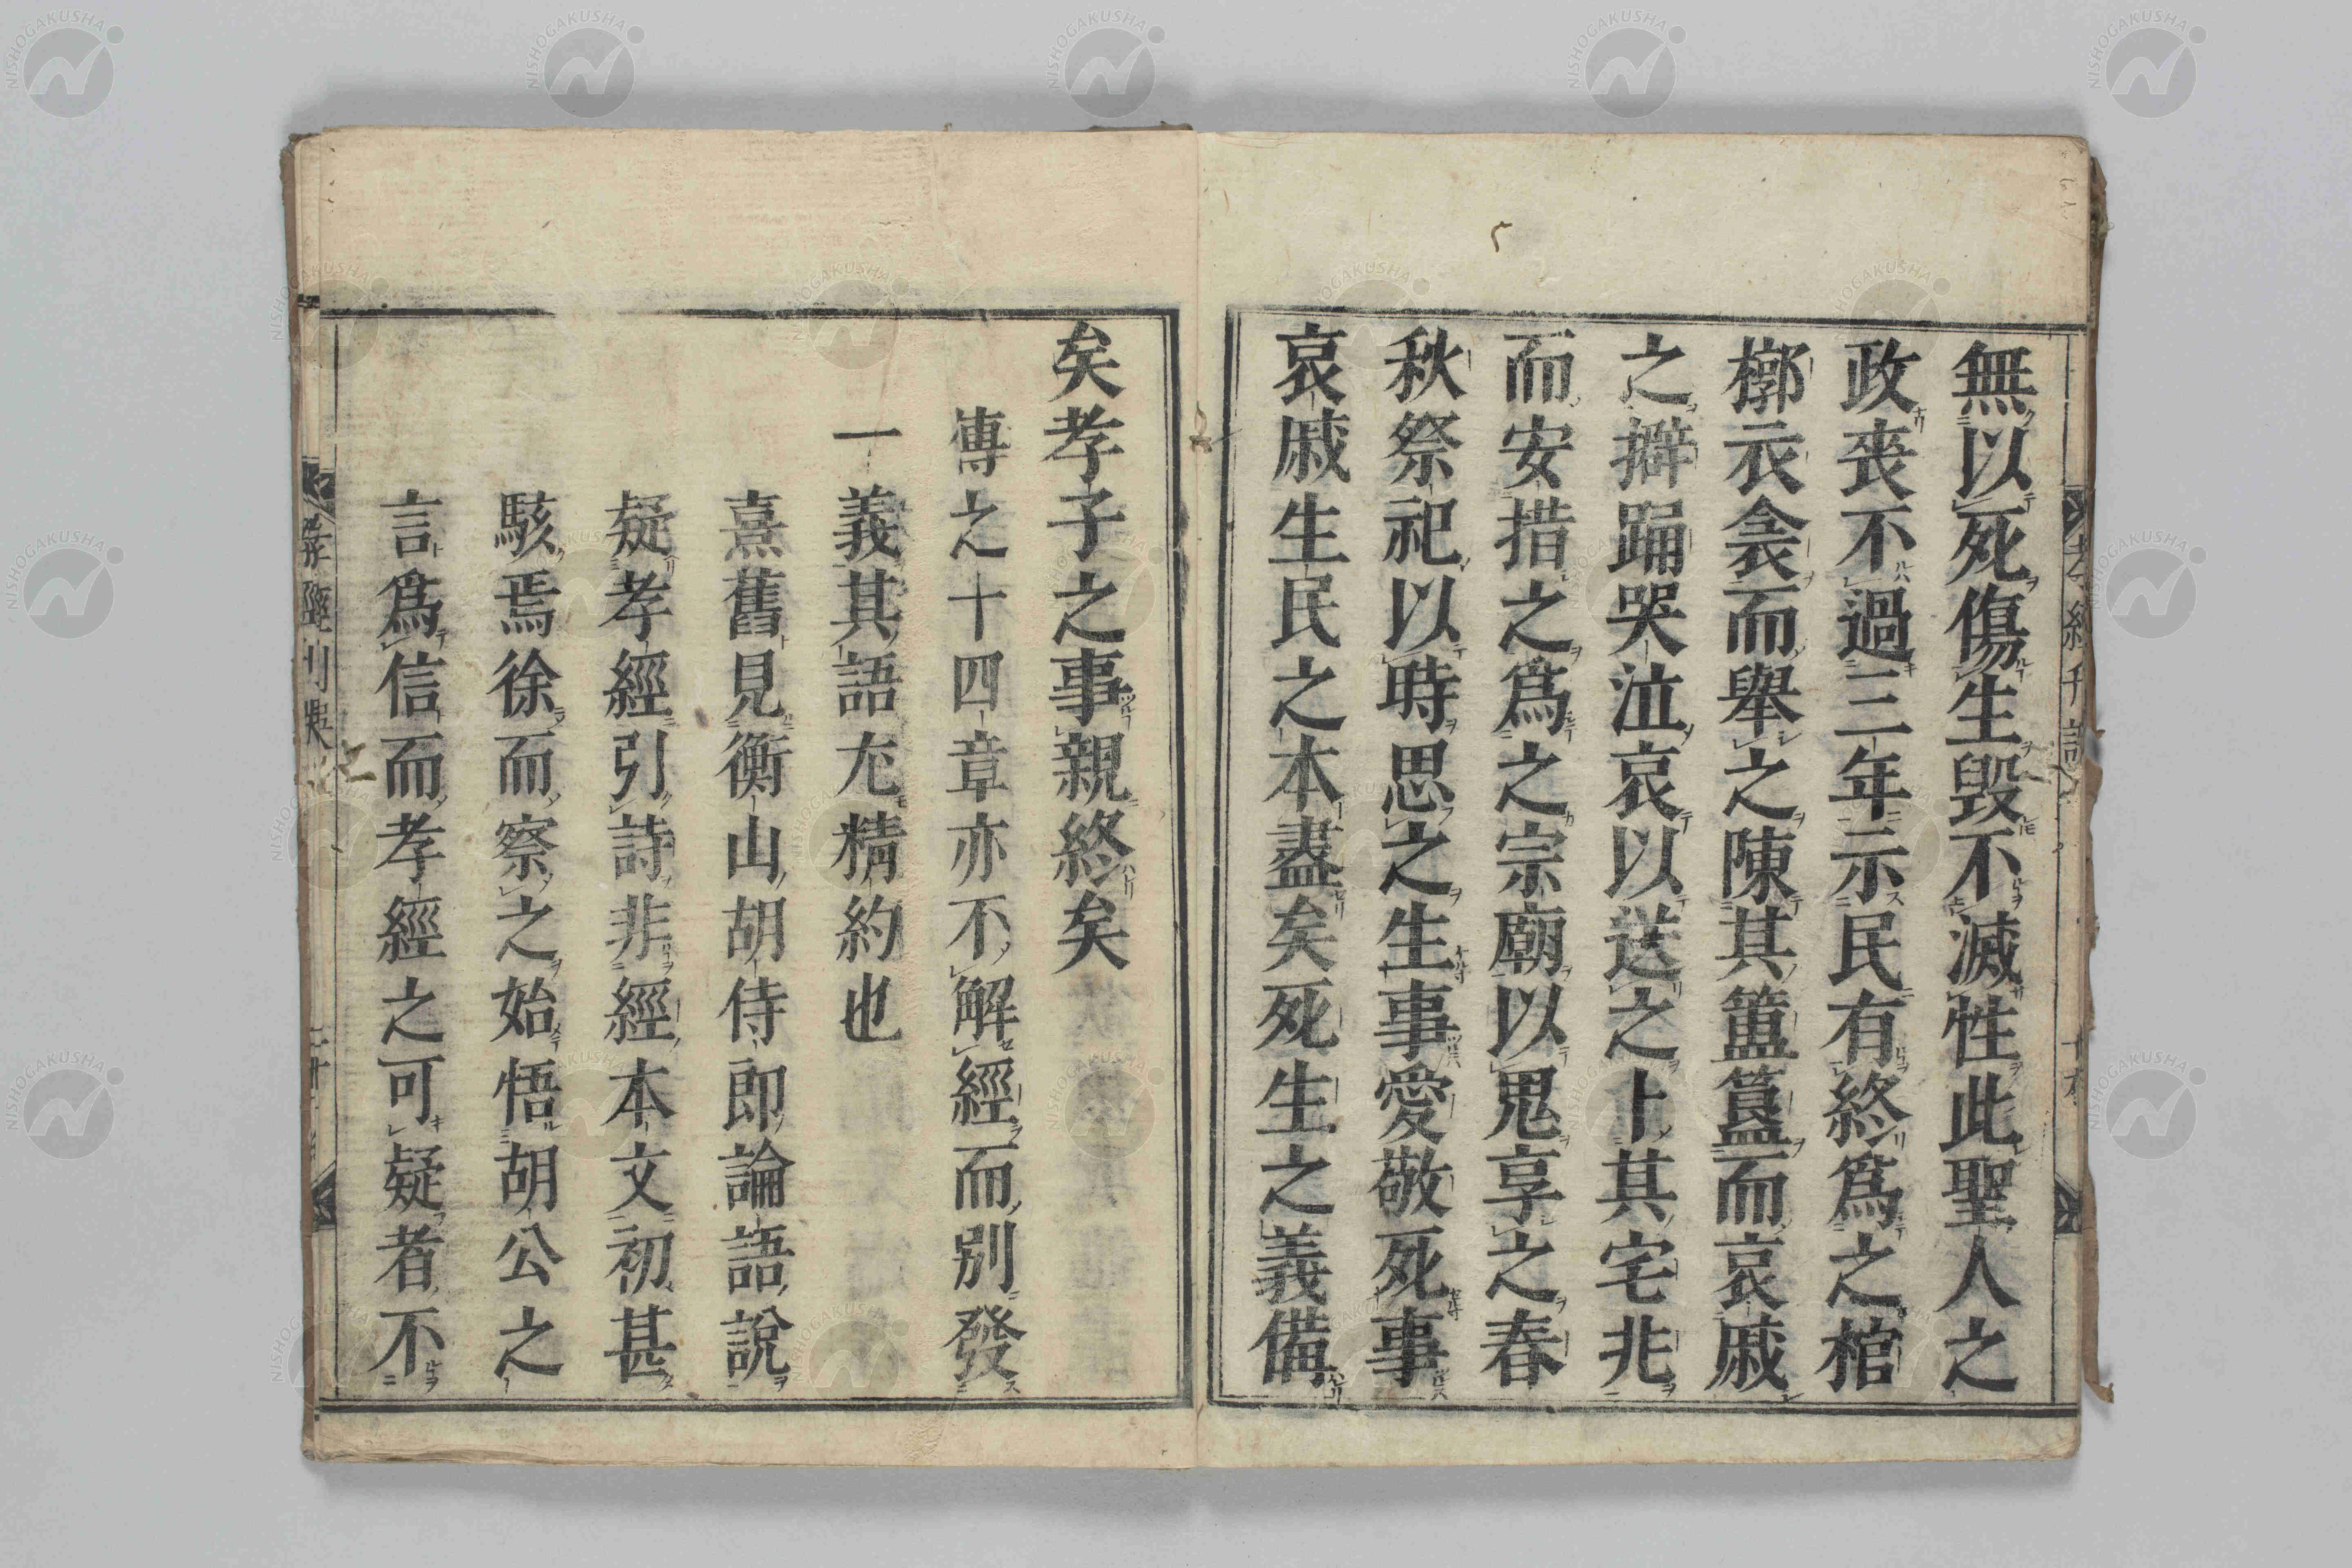 無以死傷生毀不滅性此聖人之
政喪不過三年示民有終爲之棺
槨衣衾而舉之陳其簠簋而哀戚
之擗踊哭泣哀以送之卜其宅兆
而安措之爲之宗廟以鬼享之春
秋祭祀以時思之生事愛敬死事
哀戚生民之本盡矣死生之義備
矣孝子之事親終矣
傳之十四章亦不解經而別發
一義其語尤精約也
熹舊見衡山胡侍郎論語說
疑孝經引詩非經本文初甚
駭焉徐而察之始悟胡公之
言爲信而孝經之可疑者不
NISHOGAKUSHA